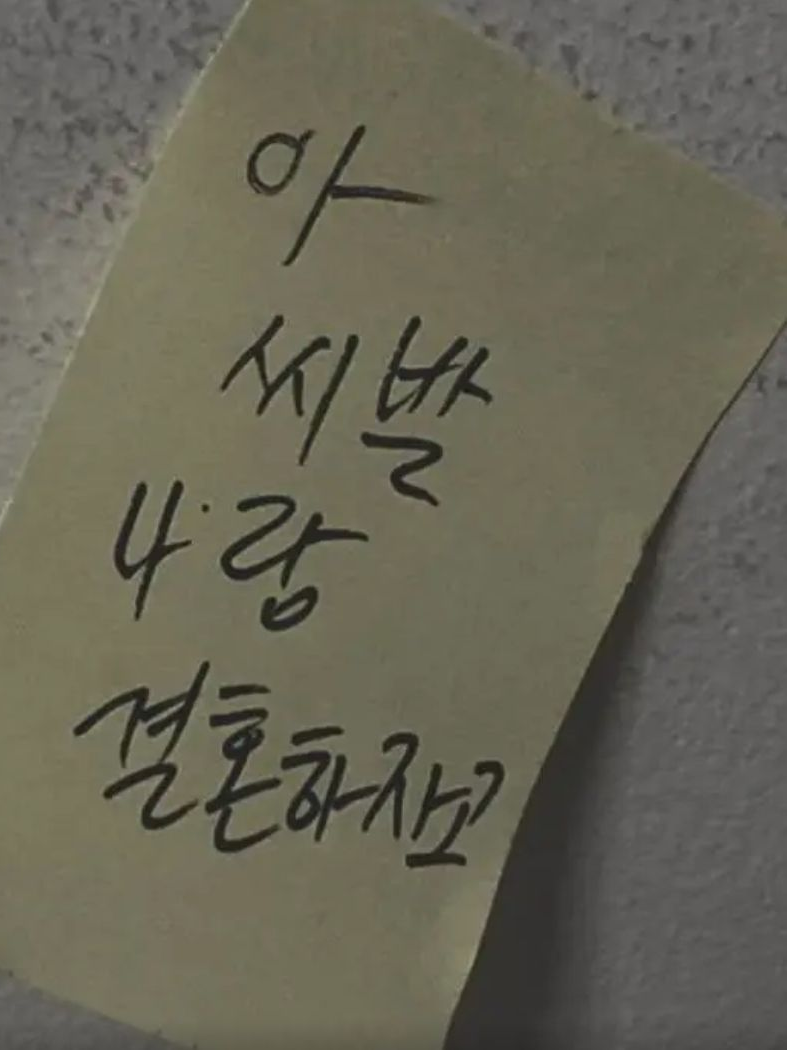 아
씨발
나랑
결혼하자고